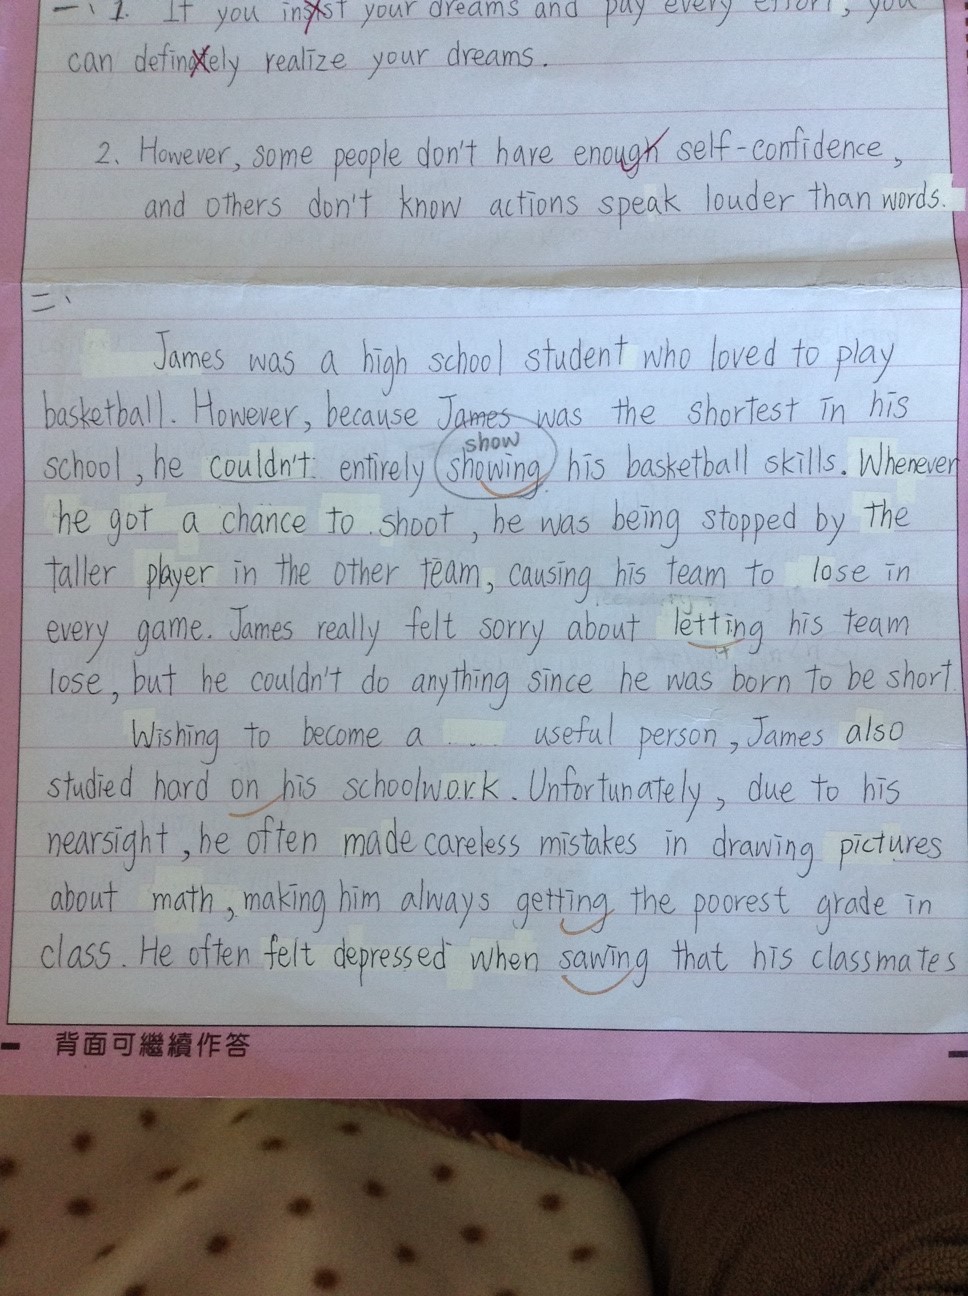 一、1. If you insist your dreams and pay every effort, you
can definitely realize your dreams.
2. However, some people don't have enough self-confidence,
and others don't know actions speak louder than words.
二、
James was a high school student who loved to play
basketball. However, because James was the shortest in his
show
school, he couldn't entirely showing his basketball skills. Whenever
he got a chance to shoot, he was being stopped by the
taller player in the other team, causing his team to lose in
every game. James really felt sorry about letting his team
lose, but he couldn't do anything since he was born to be short.
Wishing to become a useful person, James also
studied hard on his schoolwork. Unfortunately, due to his
nearsight, he often made careless mistakes in drawing pictures
about math, making him always getting the poorest grade in
class. He often felt depressed when sawing that his classmates
背面可繼續作答